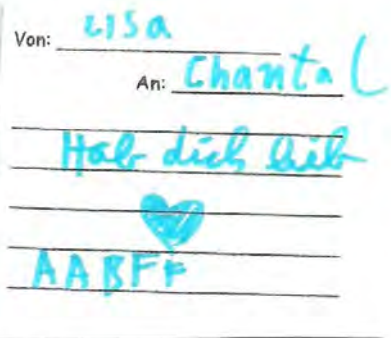 Von: Lisa
An: Chantal
Hab dich lieb
AABFF